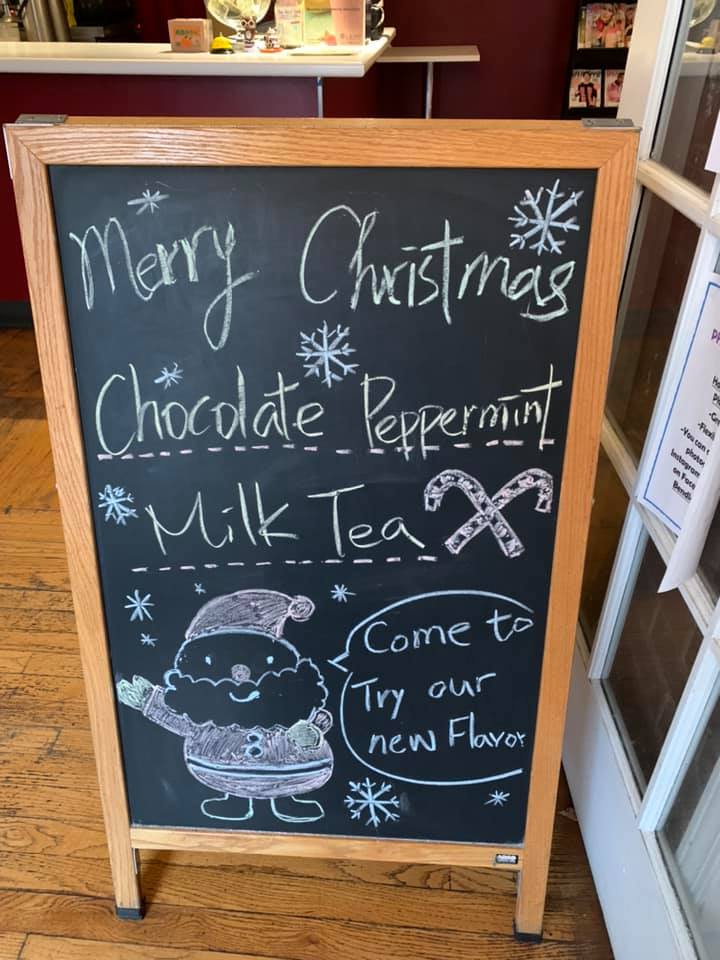 Merry Christmas
Chocolate Peppermint
Milk Tea
Come to
Try our
new Flavor